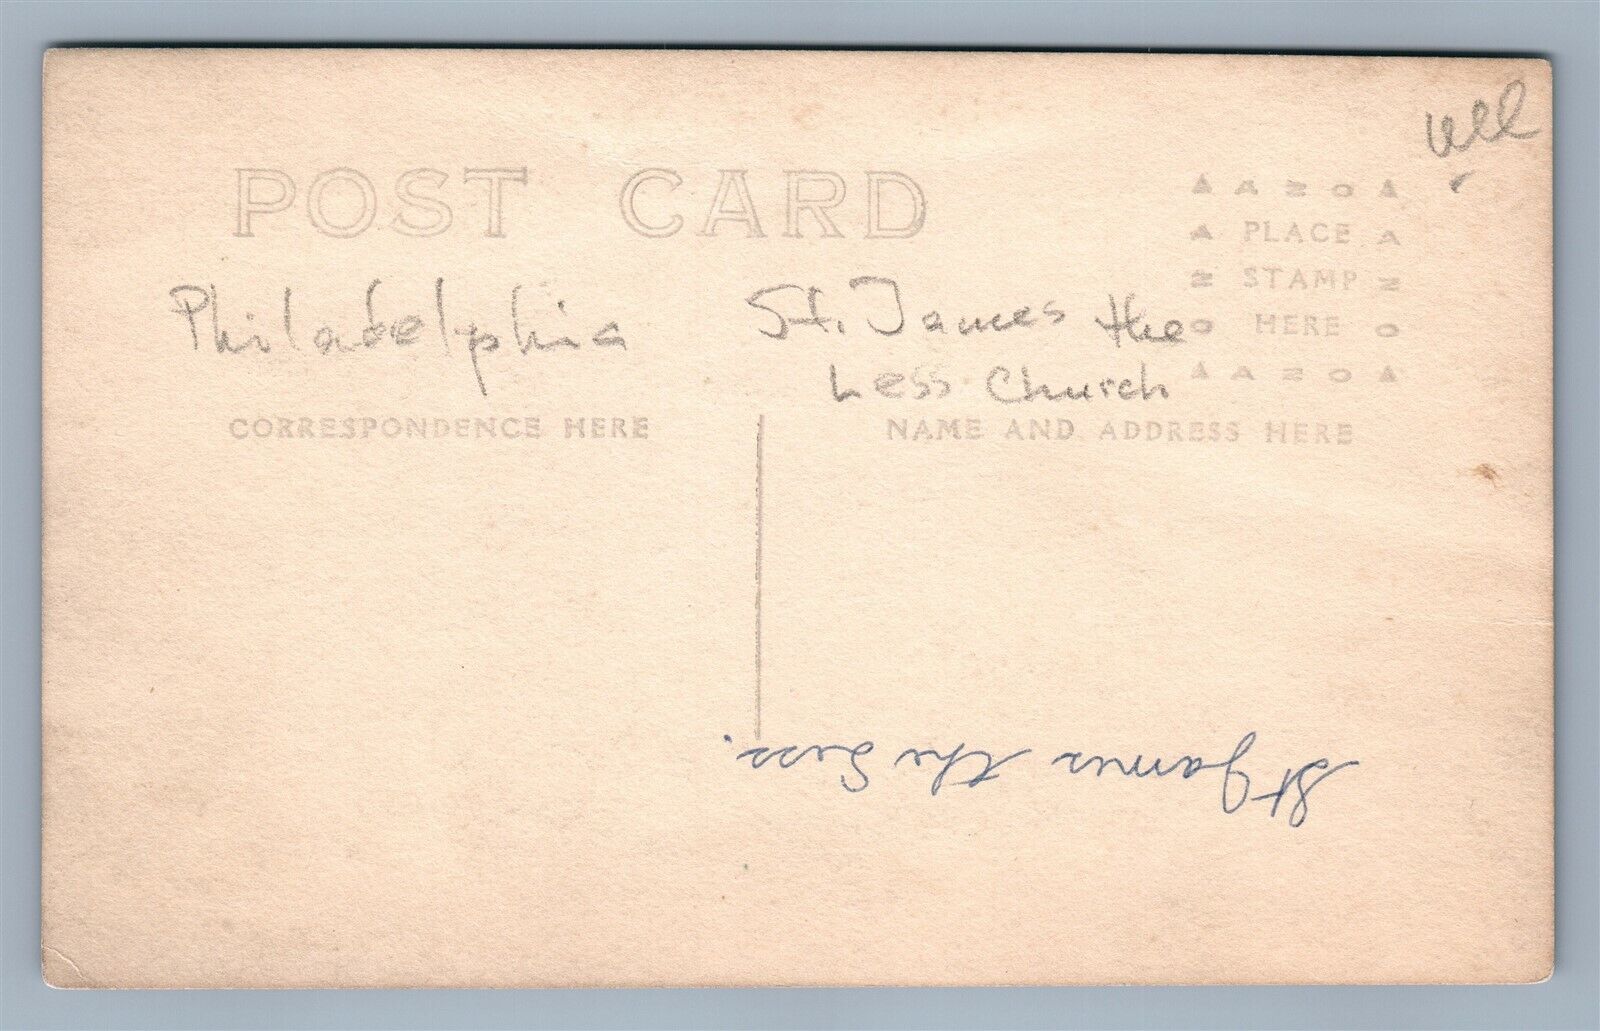 POST CARD
▲ A Z O ▲
A PLACE A
Z STAMP Z
O HERE O
▲ A Z O ▲
Philadelphia
St. James the
Less Church
CORRESPONDENCE HERE
NAME AND ADDRESS HERE
St James the Less.